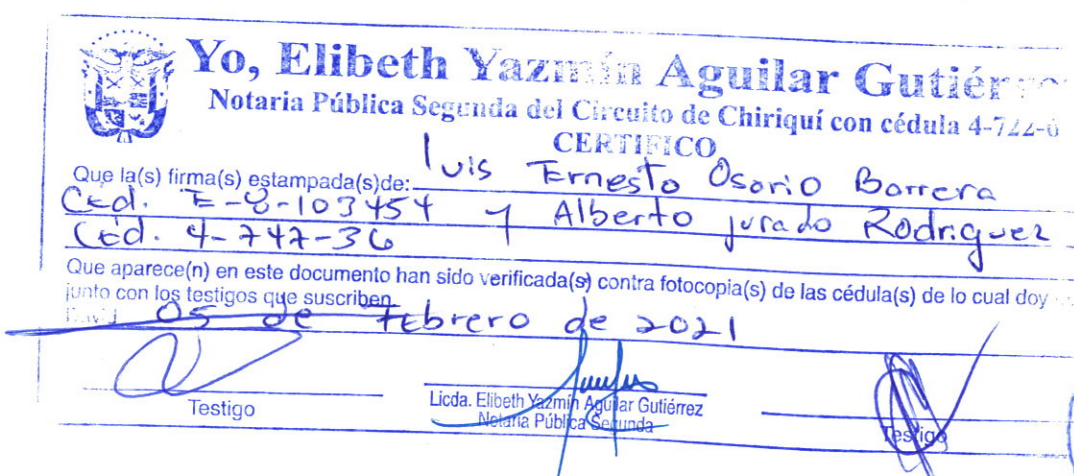 Yo, Elibeth Yazmín Aguilar Gutiérrez
Notaria Pública Segunda del Circuito de Chiriquí con cédula 4-722-6
CERTIFICO
Que la(s) firma(s) estampada(s)de: Luis Ernesto Osorio Barrera
Céd. E-8-103454 y Alberto jurado Rodriguez
Céd. 4-747-36
Que aparece(n) en este documento han sido verificada(s) contra fotocopia(s) de las cédula(s) de lo cual doy
junto con los testigos que suscriben
David 05 de Febrero de 2021
Testigo
Licda. Elibeth Yazmín Aguilar Gutiérrez
Notaria Pública Segunda
Testigo